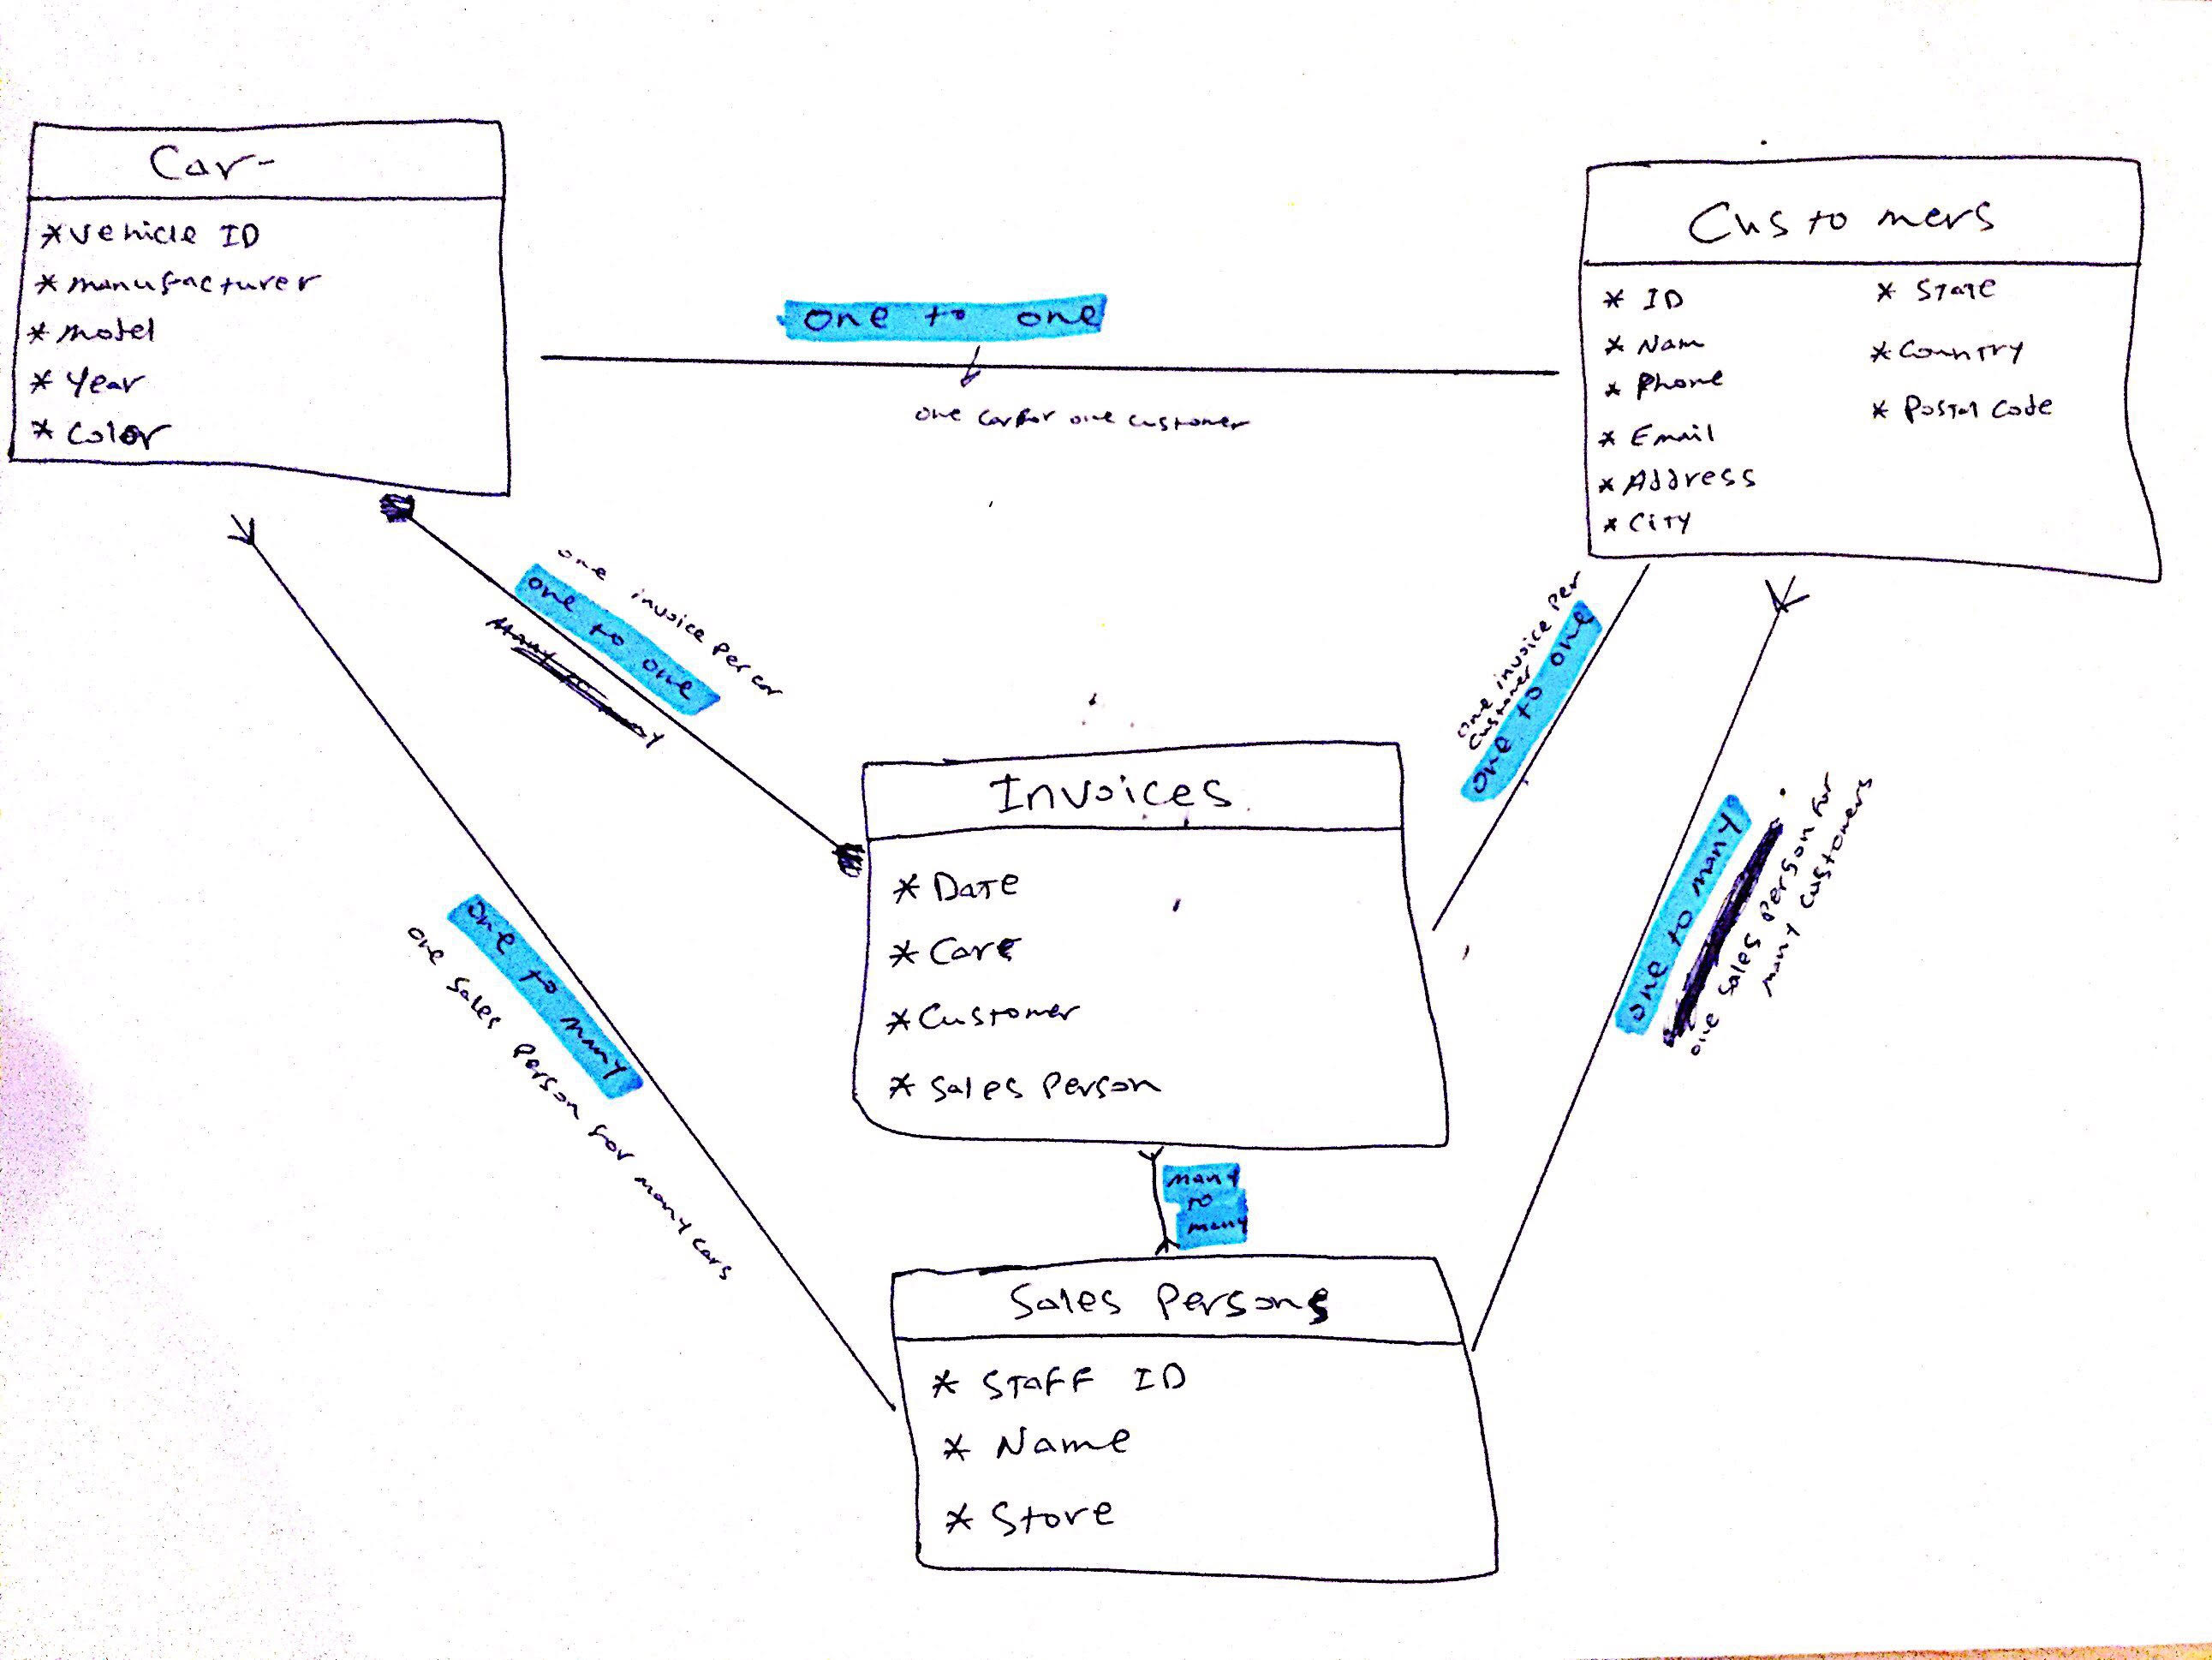 Car
* Vehicle ID
* manufacturer
* Model
* Year
* Color
Customers
* ID
* Nam
* Phone
* Email
* Address
* City
* State
* Country
* Postal Code
one to one
one car for one customer
one invoice per car
one to one
Many to
one invoice per
customer
one to one
Invoices
* Date
* Care
* Customer
* Sales Person
one to many
one sales person for many cars
one to many
one sales person for
many customers
many
to
many
Sales Persons
* Staff ID
* Name
* Store